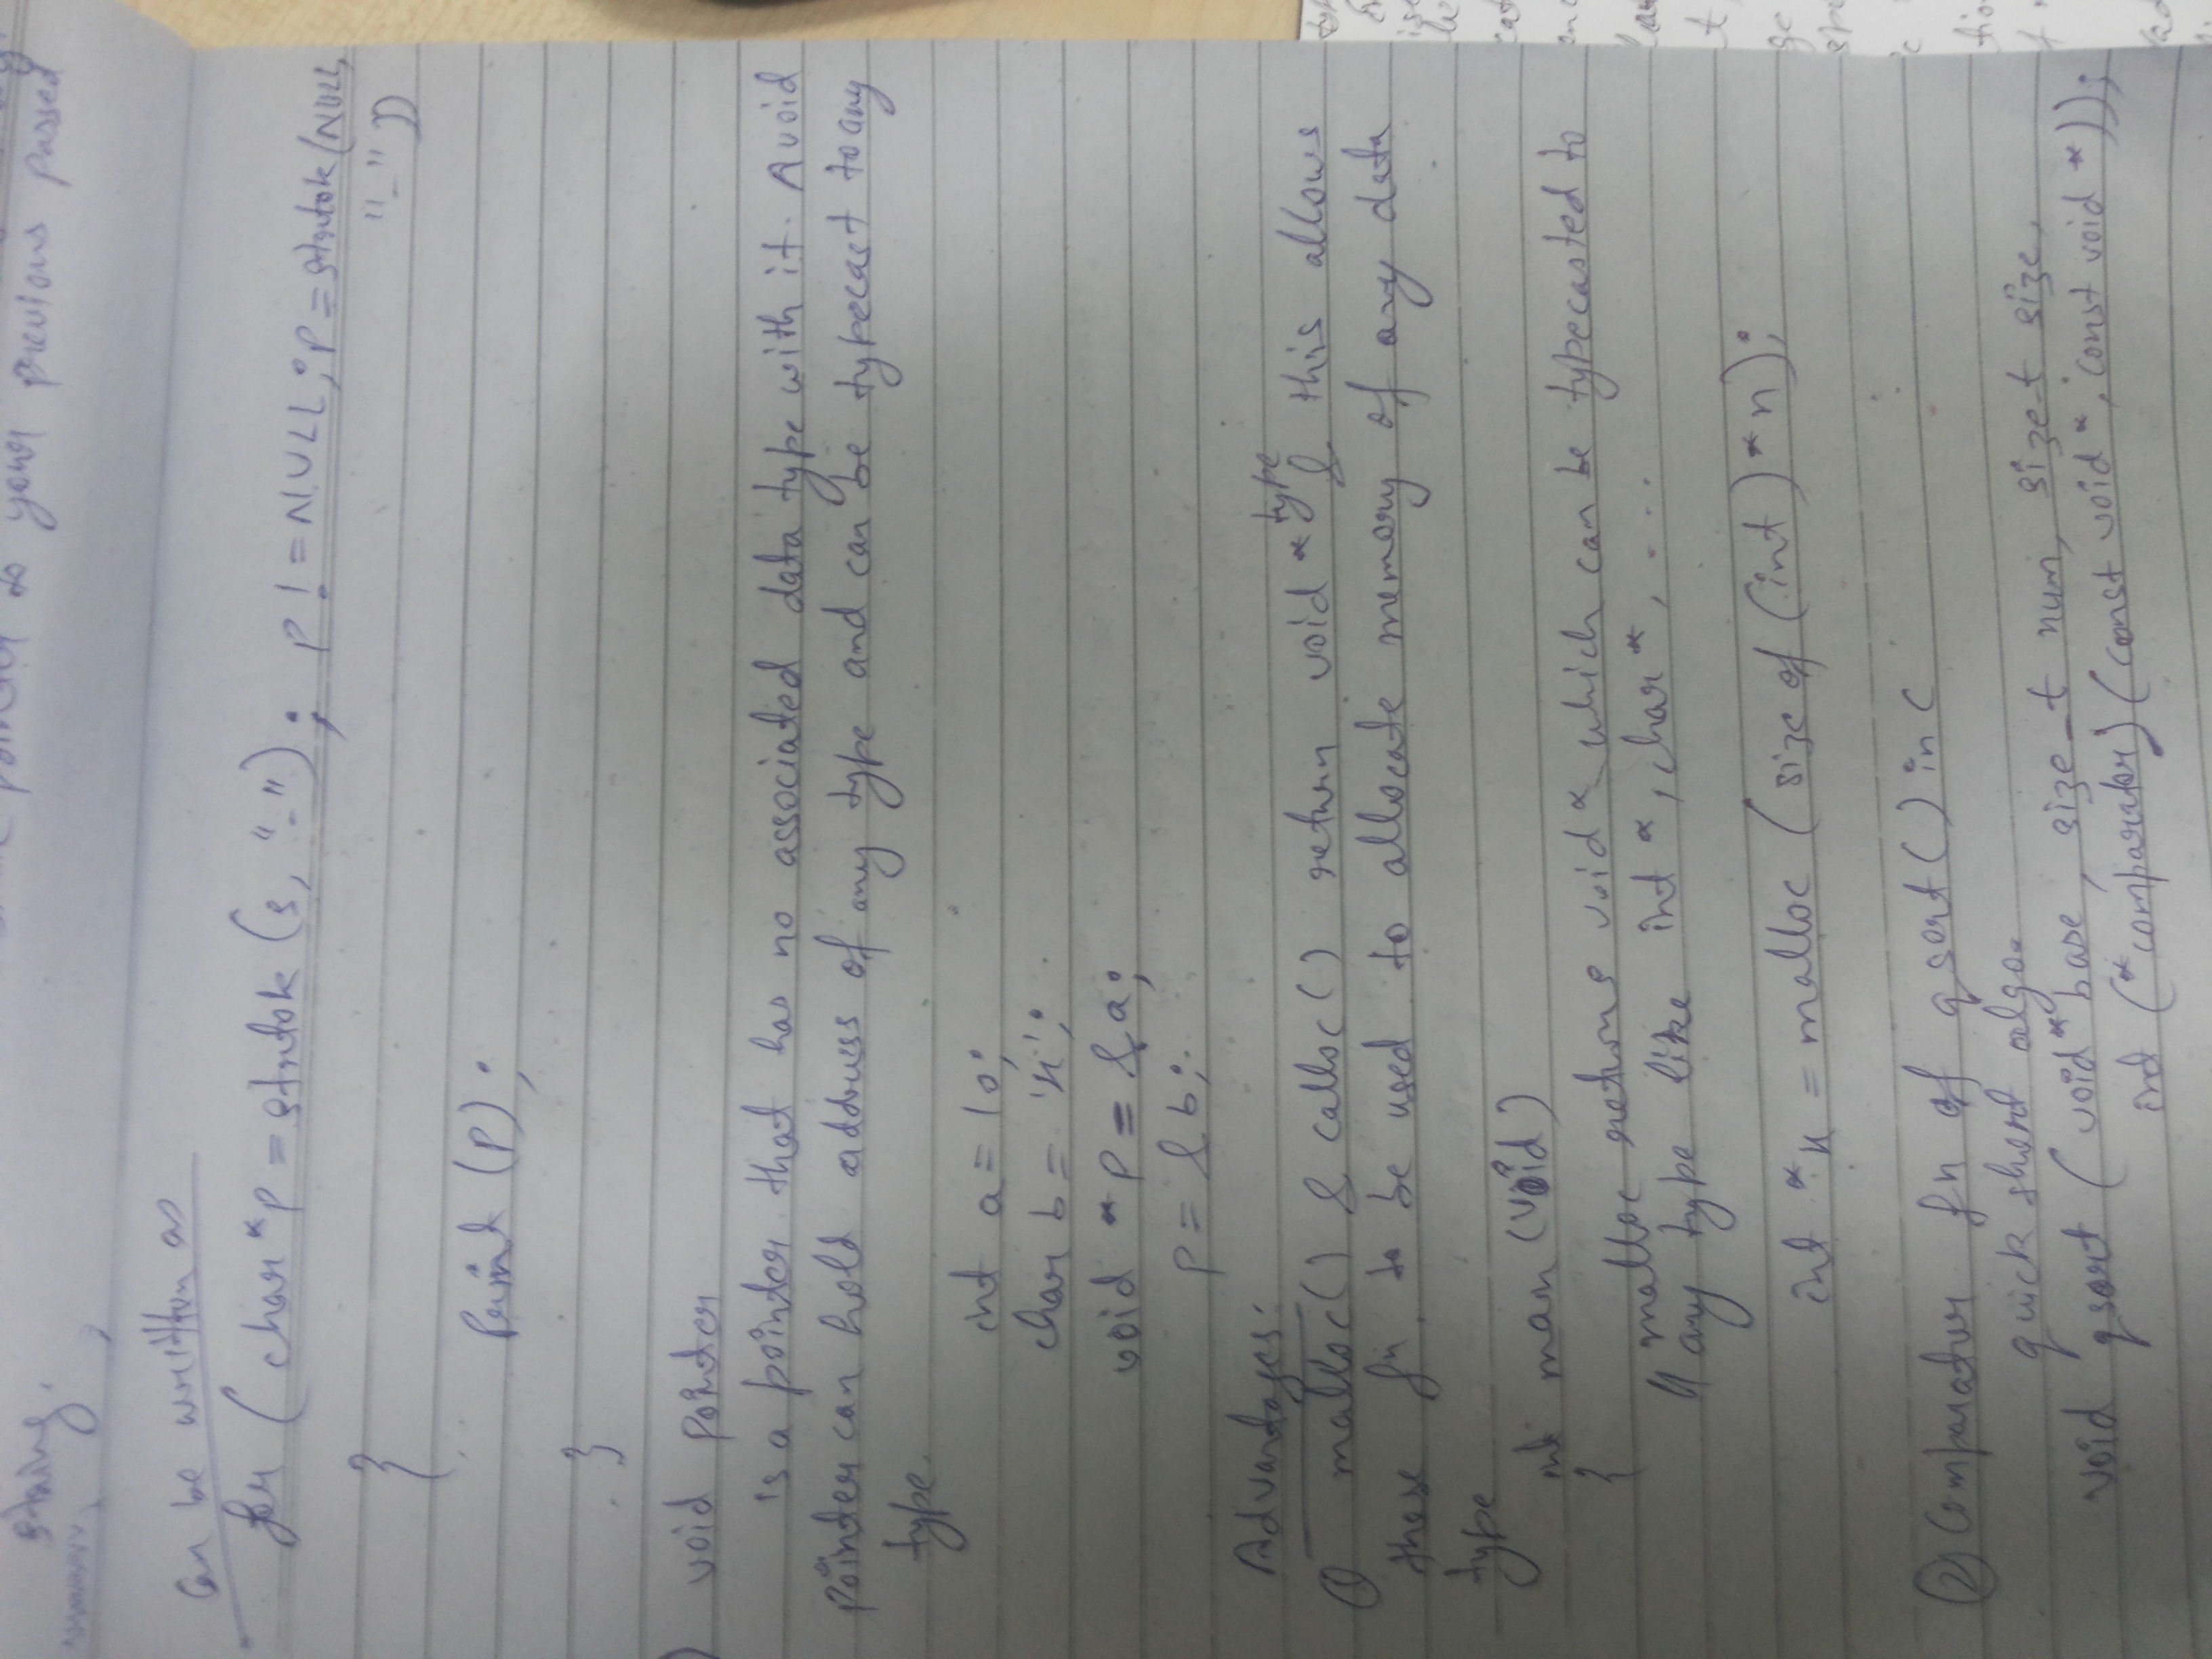 pointer to your previous passed
string.
Can be written as
for (char *p = strtok (s, "-"); p != NULL; p = strtok (NULL,
"-"))
{
Print (p);
}
void pointer
is a pointer that has no associated data type with it. A void
pointer can hold address of any type and can be typecast to any
type.
int a = 10;
char b = 'x';
void *p = &a;
p = &b;
Advantages:
① malloc() & calloc() return void * type & this allows
these fn. to be used to allocate memory of any data
type
int main (void)
{
malloc returns void * which can be typecasted to
// any type like int *, char *, ....
int *x = malloc (size of (int) * n);
② Comparator fn of qsort() in C
quick short algo.
void qsort (void * base, size_t num, size_t size,
int (*comparator) (const void *, const void *));